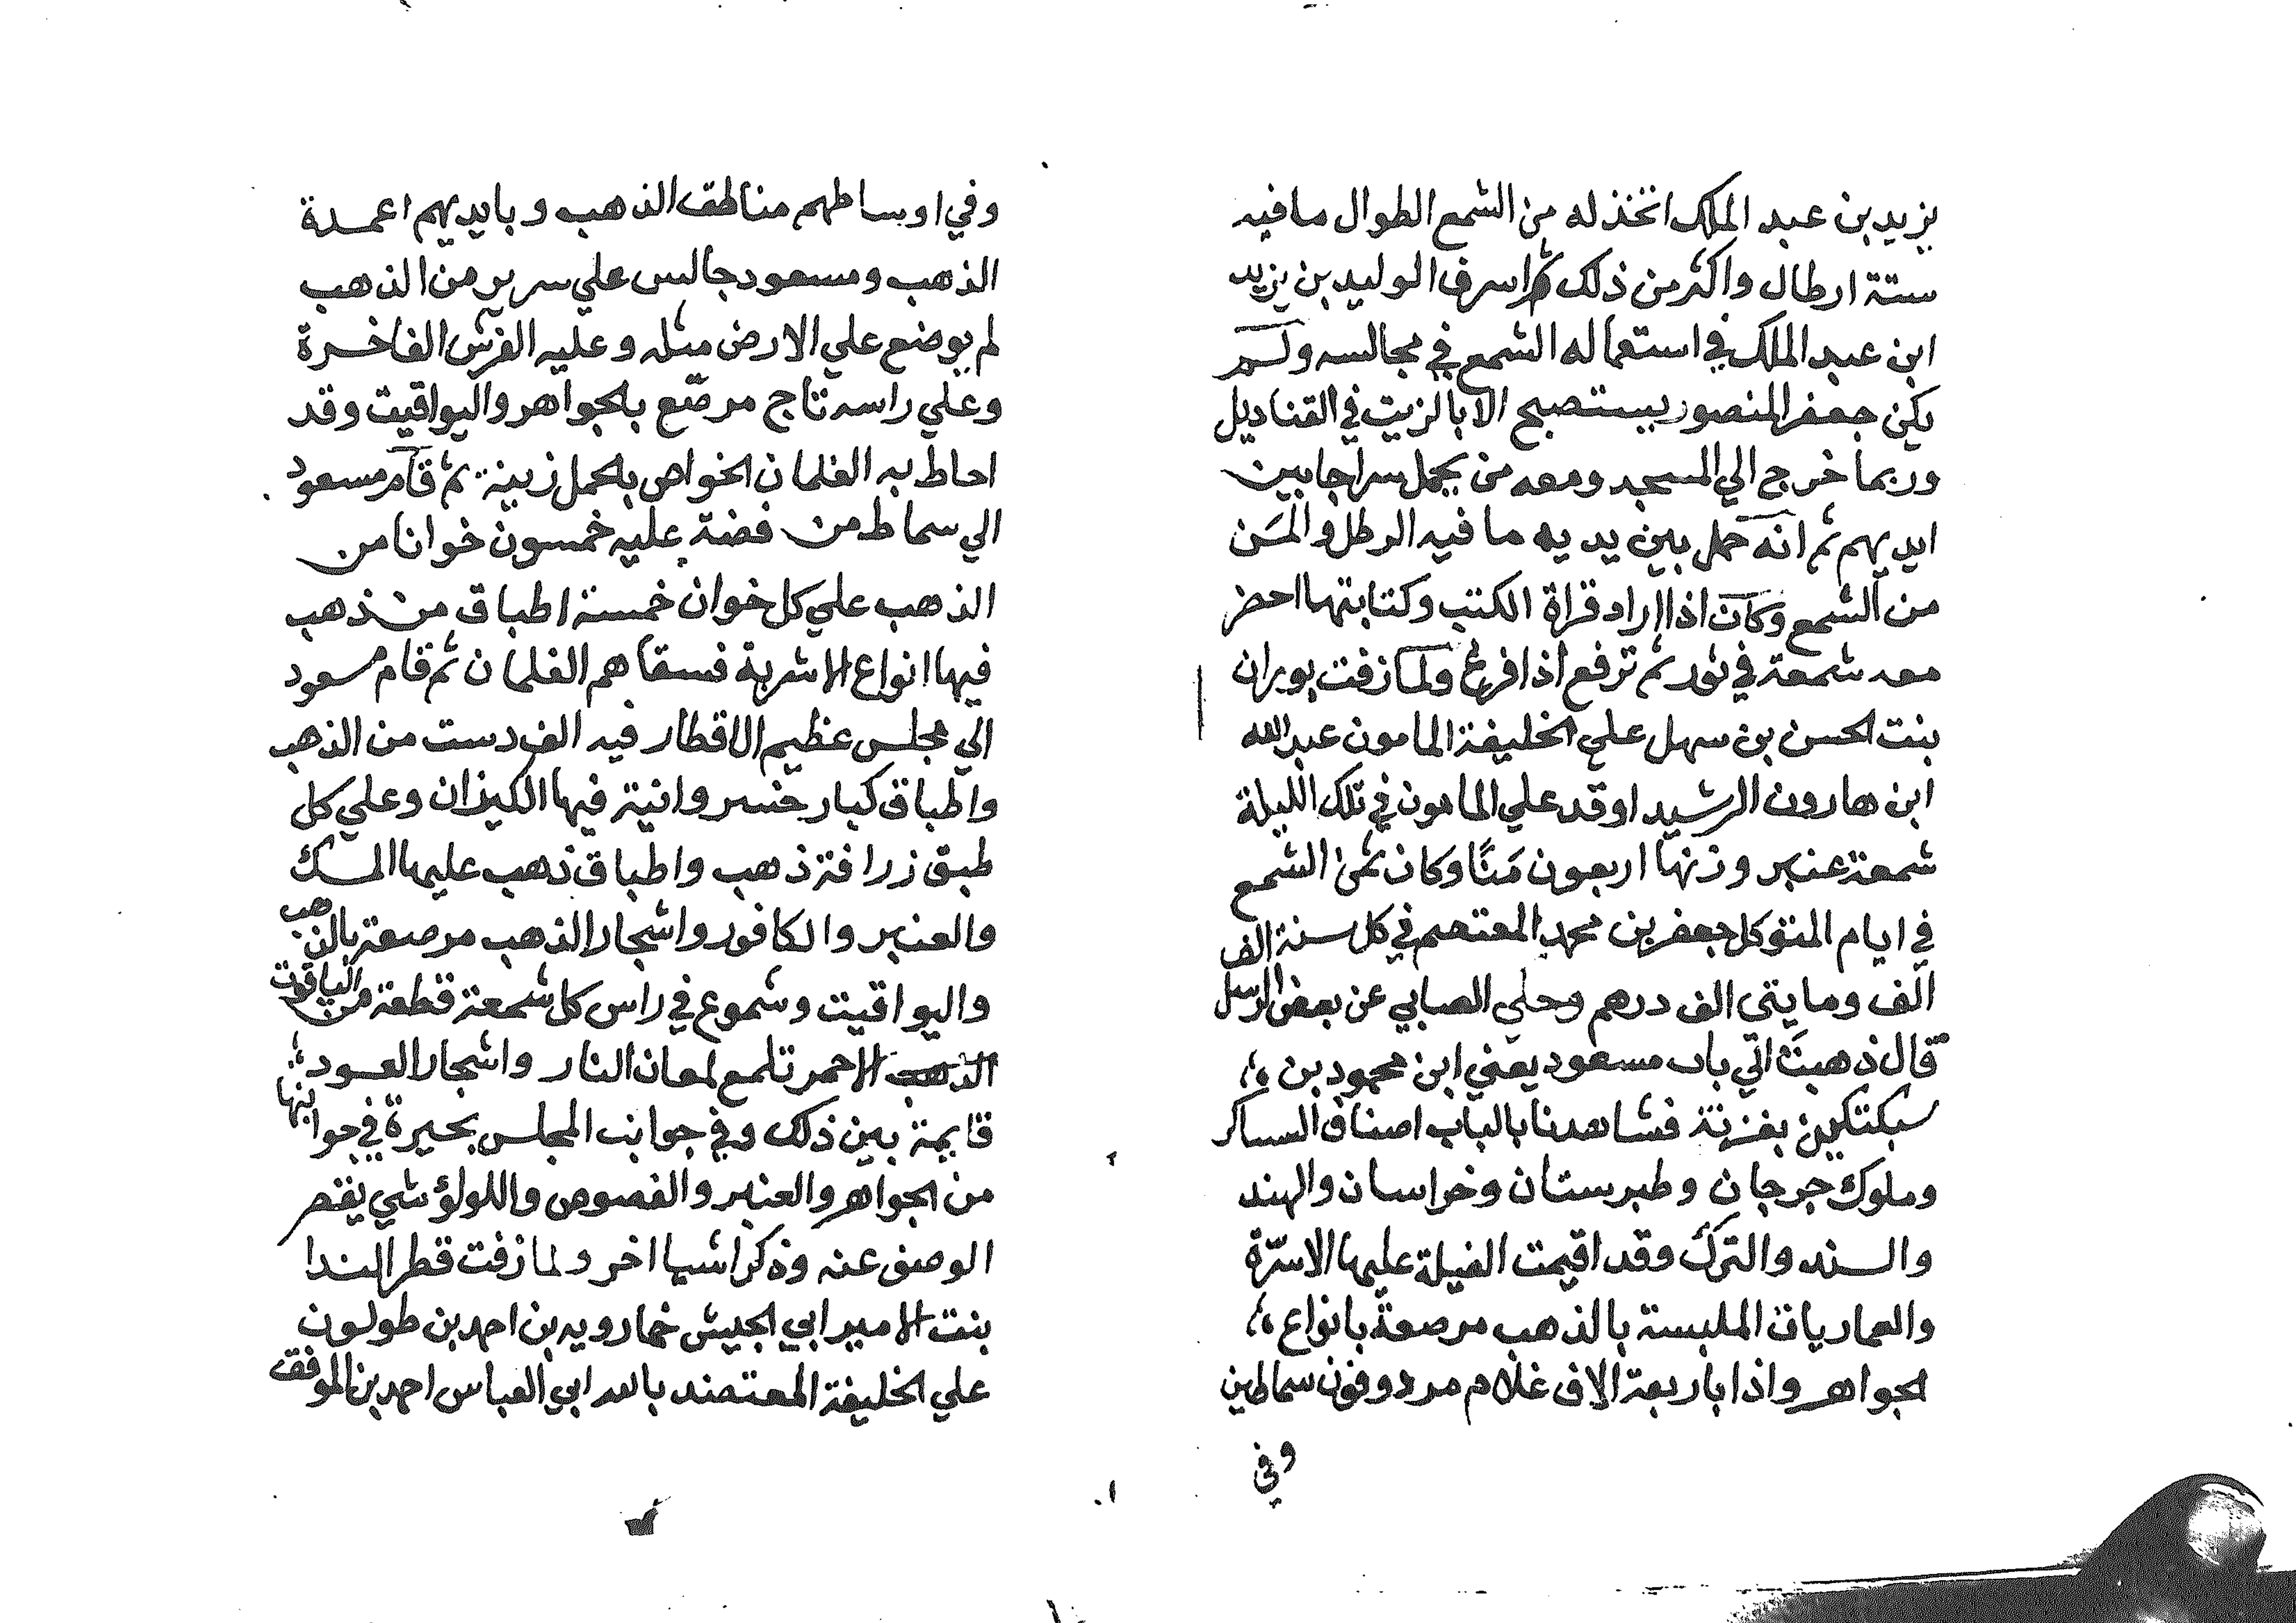 يزيد بن عبد الملك اتخذ له من الشمع الطوال ما فيه
ستة ارطال واكثر من ذلك ثم اسرف الوليد بن يزيد
ابن عبد الملك في استعماله الشمع في مجالسه ولم
يكن جعفر المنصور يستصبح الا بالزيت في القناديل
وربما خرج الي المسجد ومعه من يحمل سراجا بين
ايديهم ثم انه حمل بين يديه ما فيه الرطل والمن
من الشمع وكان اذا اراد قراة الكتب وكتابتها احضر
معه شمعة في تور ثم ترفع اذا فرغ ولما زفت بوران
بنت الحسن بن سهل علي الخليفة المامون عبد الله
ابن هارون الرشيد اوقد علي المامون في تلك الليلة
شمعة عنبر وزنها اربعون مَنًا وكان ثمن الشمع
في ايام المتوكل جعفر بن محمد المعتصم في كل سنة الف
الف ومايتى الف درهم وحكي الصابي عن بعض الرسل
قال ذهبت الي باب مسعود يعني ابن محمود بن
سبكتكين بغزنة فشاهدنا بالباب اصناف العساكر
وملوك جرجان وطبرستان وخراسان والهند
والسند والترك وقد اقيمت الفيلة عليها الاسرّة
والعماريات الملبسة بالذهب مرصعة بانواع
الجواهر واذا باربعة الاف غلام مردوفون سماطين
وفي
وفي اوساطهم مناطق الذهب وبايديهم اعمدة
الذهب ومسعود جالس علي سرير من الذهب
لم يوضع علي الارض مثله وعليه الفرش الفاخرة
وعلي راسه تاج مرصّع بالجواهر واليواقيت وقد
احاط به الغلمان الخواص باكمل زينة ثم قام مسعود
الي سماط من فضة عليه خمسون خوانا من
الذهب علي كل خوان خمسة اطباق من ذهب
فيها انواع الاشربة فسقاهم الغلمان ثم قام مسعود
الي مجلس عظيم الاقطار فيه الف دست من الذهب
واطباق كبار خسروانية فيها الكيزان وعلي كل
طبق زرافة ذهب واطباق ذهب عليها المسك
والعنبر والكافور واشجار الذهب مرصعة بالذهب
واليواقيت وشموع في راس كل شمعة قطعة من الياقوت
الذهب الاحمر تلمع لمعان النار واشجار العود
قايمة بين ذلك وفي جوانب المجلس بحيرة في جوانبها
من الجواهر والعنبر والفصوص واللولؤ شي يقصر
الوصف عنه وذكر اشيا اخر ولما زفت قطر الندا
بنت الامير ابي الجيش خمارويه بن احمد بن طولون
علي الخليفة المعتضد بالله ابي العباس احمد بن الموفق